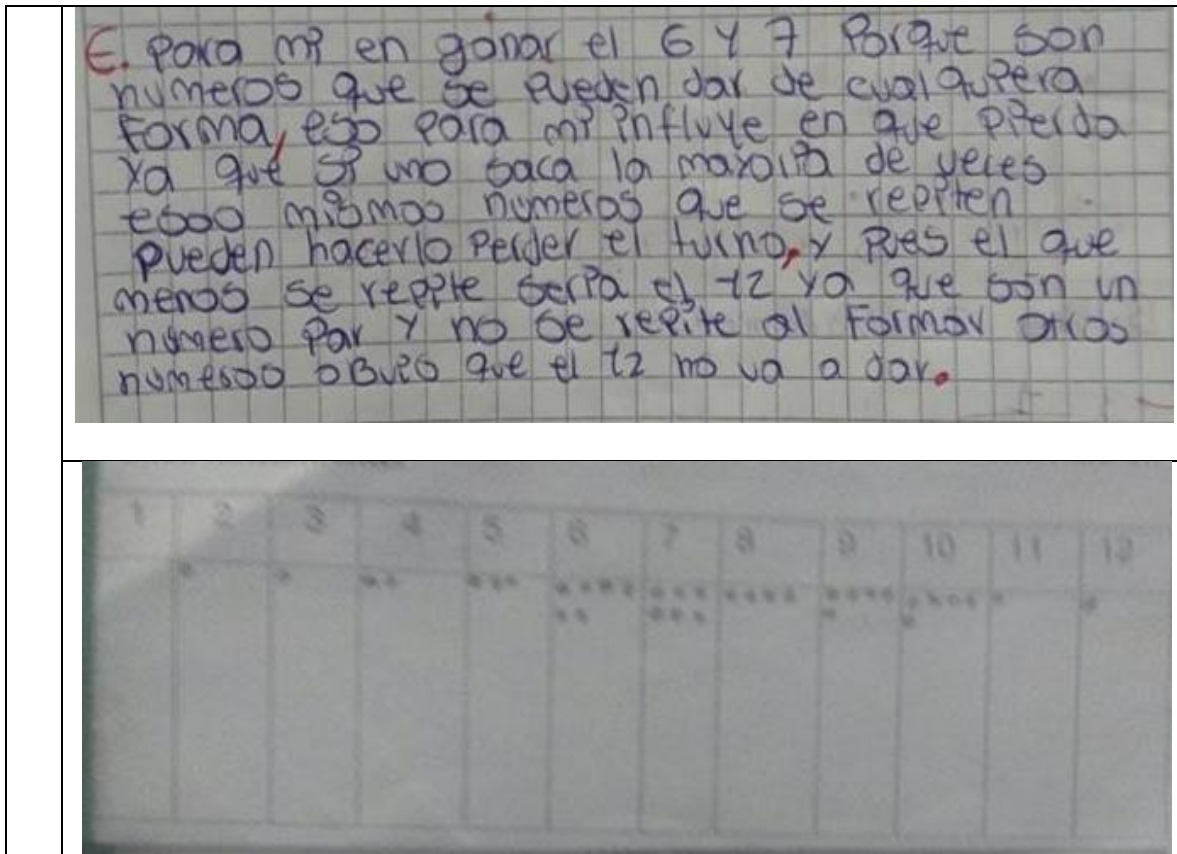 E. Para mi en ganar el 6 y 7 Porque son
numeros que se pueden dar de cualquiera
Forma, eso para mi influye en que pierda
ya que si uno saca la mayoria de veces
esos mismos numeros que se repiten
pueden hacerlo perder el turno, y pues el que
menos se repite seria el 12 ya que son un
numero Par y no se repite al Formar otros
numeros obvio que el 12 no va a dar.
1 2 3 4 5 6 7 8 9 10 11 12